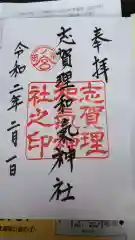 奉拝
志賀理和氣神社
志賀理
和氣神
社之印
令和二年二月一日